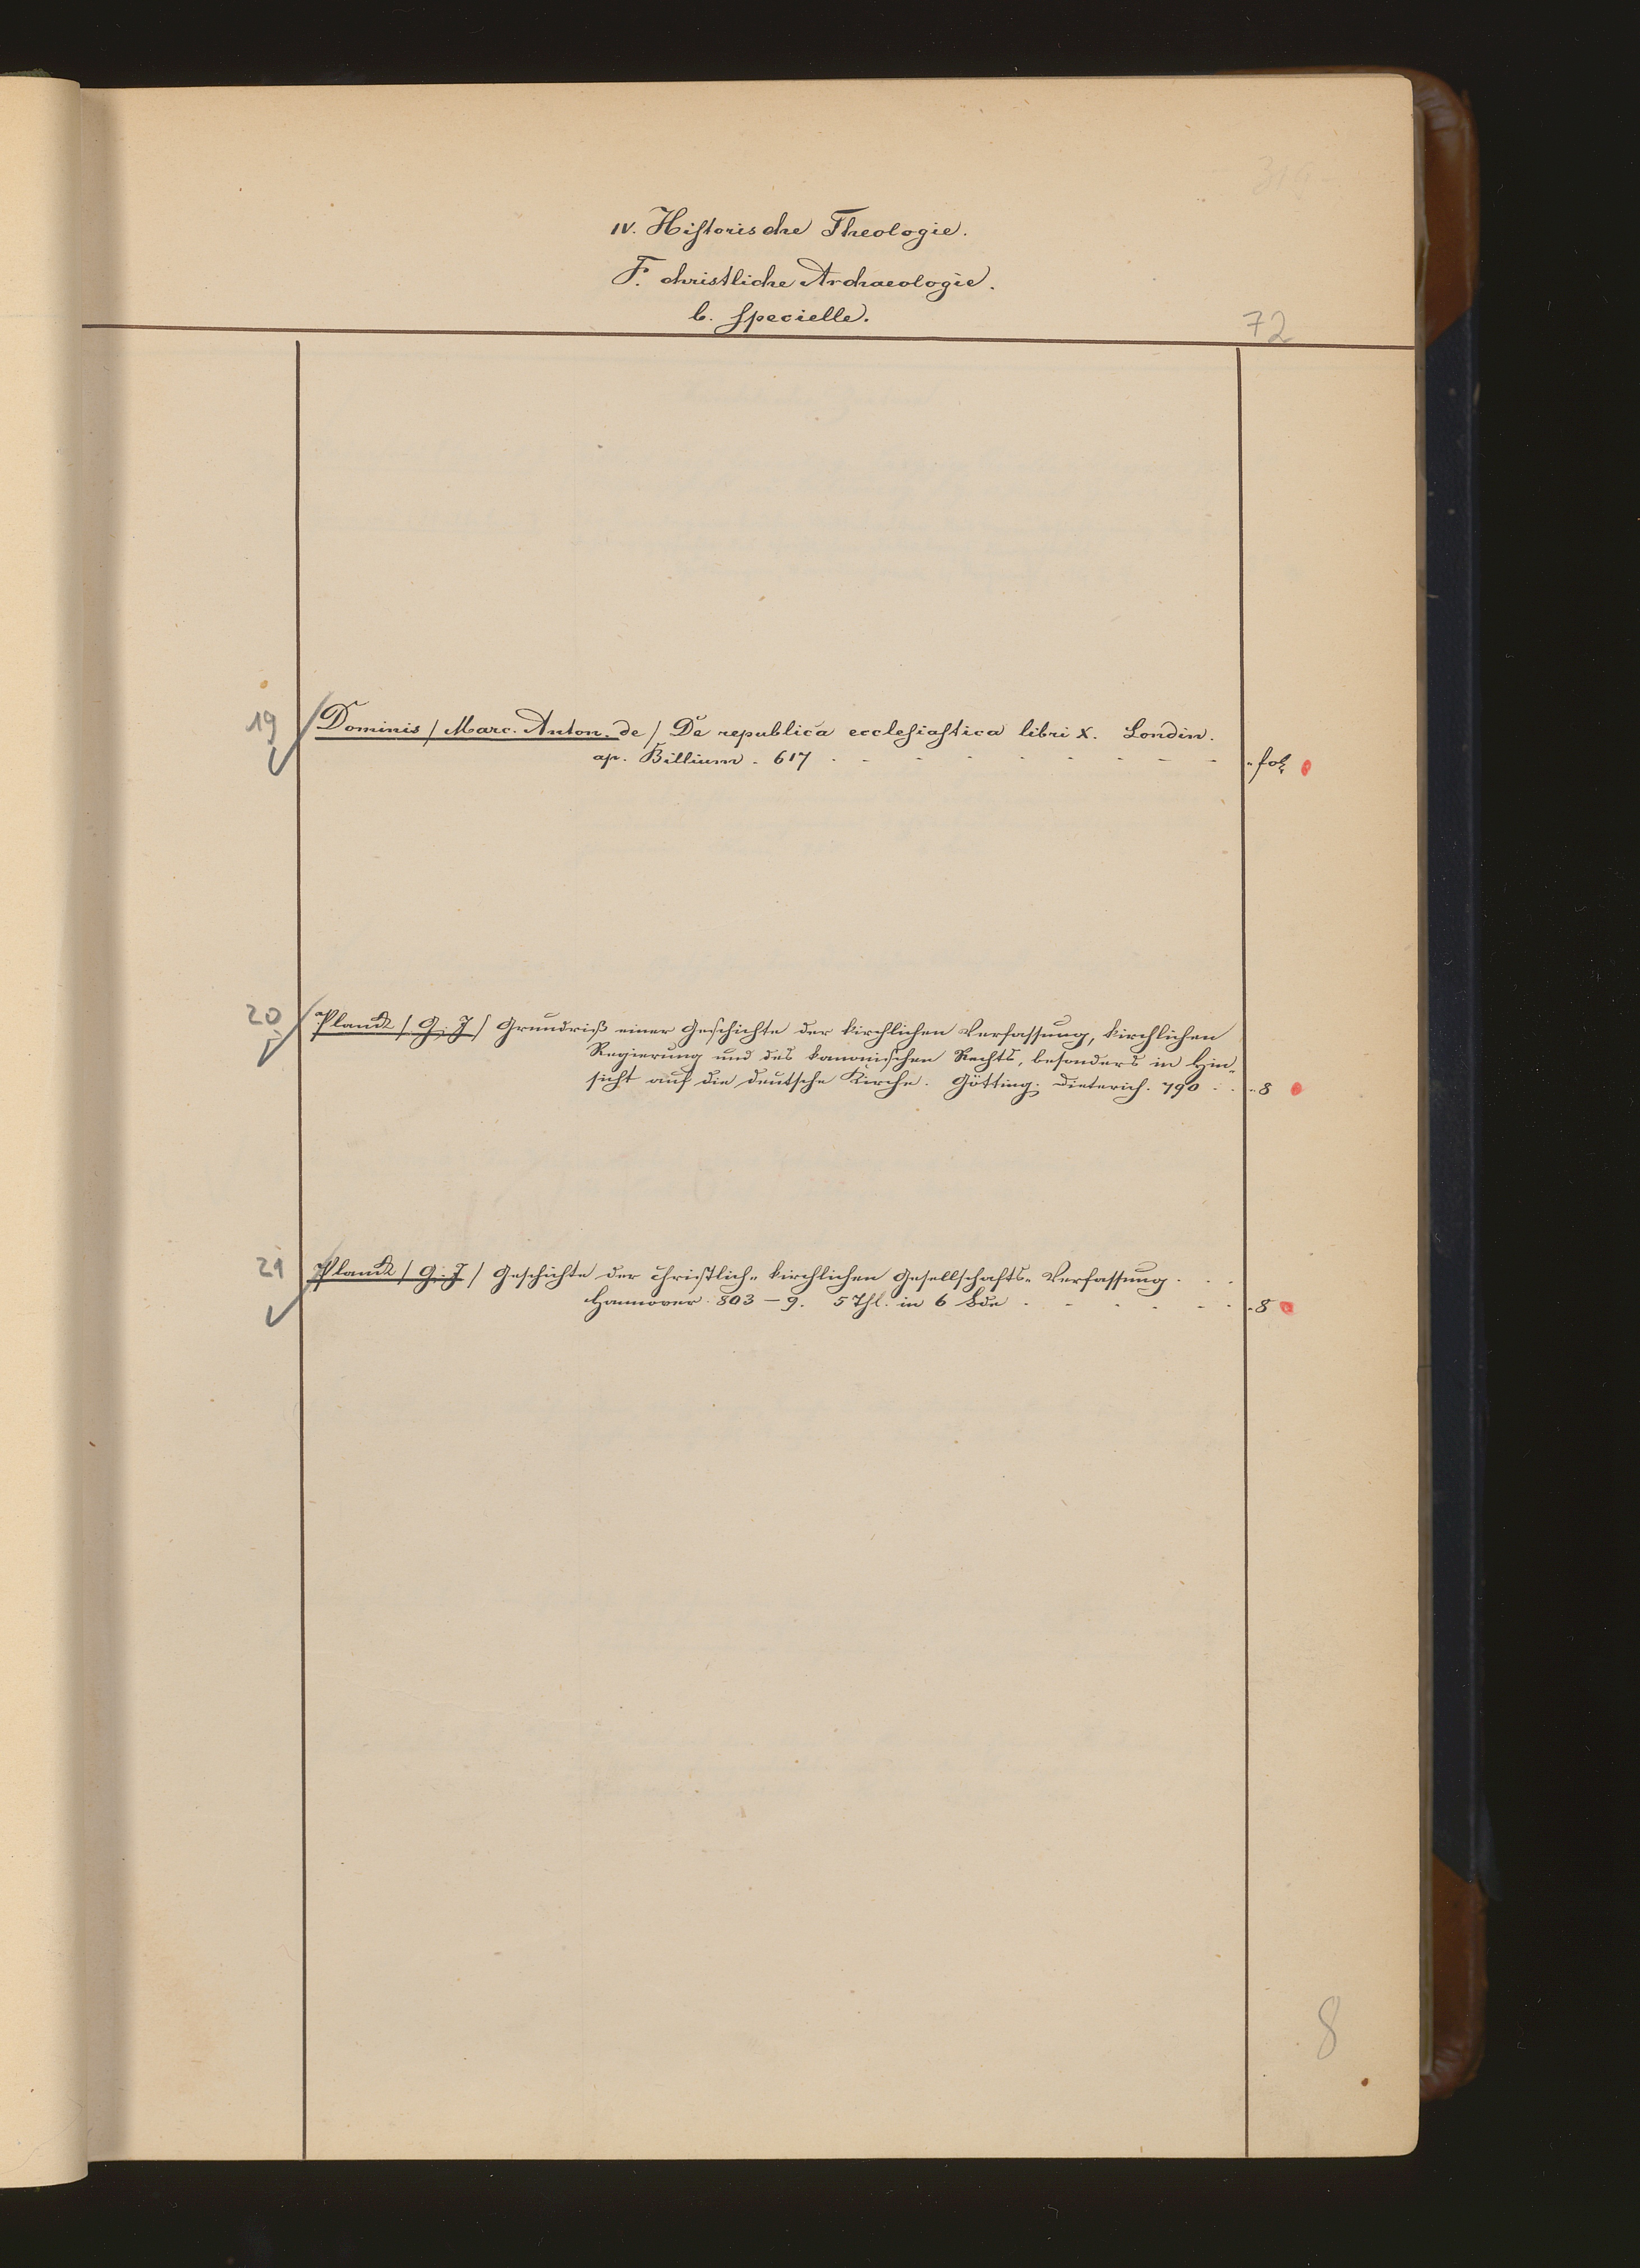 IV. Historische Theologie.
F. christliche Archaeologie.
b. specielle.
72
19 Dominis / Marc. Anton. de / De republica ecclesiastica libri X. Londin.
ap. Billium. 617 . - - - - - - - - fol.
20 Planck / G. J / Grundriß einer Geschichte der kirchlichen Verfassung, kirchlichen
Regierung und des kanonischen Rechts, besonders in Hin-
sicht auf die deutsche Kirche. Götting. Dieterich. 790 . . . 8
21 Planck / G. J / Geschichte der christlich-kirchlichen Gesellschafts-Verfassung . . .
Hannover. 803 – 9. 5 Thl. in 6 Bde . - - - - - 8
8